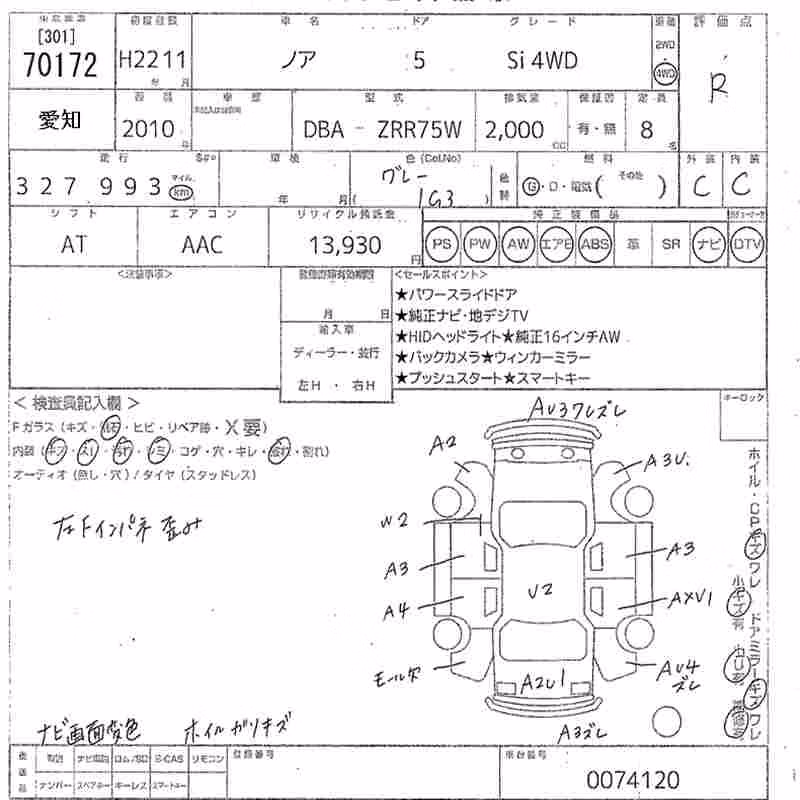 [301] 初度登録 車名 ドア グレード 評価点
70172 H2211 ノア 5 Si 4WD 2WD
年 月 4WD R
愛知 車歴 型式 排気量 保証書 定員
2010 DBA - ZRR75W 2,000 有・無 8
年 cc 名
走行 車検 色(Col.No) 燃料 外装 内装
327993 マイル km 年 月 グレー 1G3 G・D・電気( その他 ) C C
シフト エアコン リサイクル預託金 純正装備品
AT AAC 13,930 円 PS PW AW エアB ABS 革 SR ナビ DTV
<セールスポイント>
★パワースライドドア
月 日 ★純正ナビ・地デジTV
輸入車 ★HIDヘッドライト★純正16インチAW
ディーラー・並行 ★バックカメラ★ウィンカーミラー
左H ・ 右H ★プッシュスタート★スマートキー
<検査員記入欄> キーロック
Fガラス(キズ・飛石・ヒビ・リペア跡・X要)
内装(キズ・スレ・汚れ・シミ・コゲ・穴・キレ・破れ・割れ)
オーディオ(無し・穴)/タイヤ(スタッドレス)
AU3フレズレ
A2 A3U
左Fインパネ歪み
W2
A3 A3
A4 U2 AXU1
モール欠 A2U1 AU4ズレ
A3ズレ
ホイル・CPキズワレ
ドアミラーキズワレ
ナビ画面変色 ホイルガリキズ
取説 ナビ ロム/SD B-CAS リモコン 登録番号 車台番号
ナンバー スペアキー キーレス スマートキー 0074120